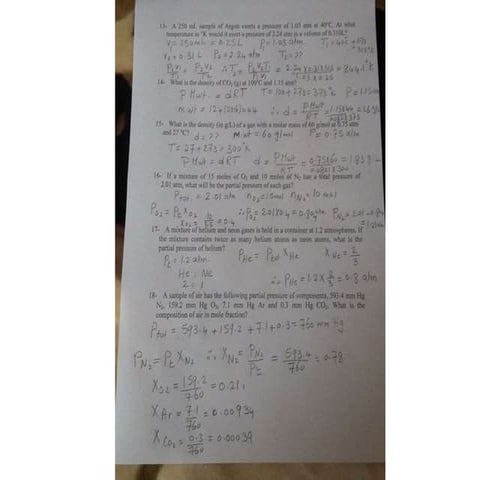 13- A 250 mL sample of Argon exerts a pressure of 1.03 atm at 40°C. At what
temperature in °K would it exert a pressure of 2.24 atm in a volume of 0.310L?
V₁ = 250mL = 0.25L P₁ = 1.03 atm T₁ = 40 + 273
V₂ = 0.31 L P₂ = 2.24 atm T₂ = ?? = 313°K
P₁V₁/T₁ = P₂V₂/T₂ ∴ T₂ = P₂V₂T₁/P₁V₁ = 2.24 x 0.31 x 313/1.03 x 0.25 = 844.1°K
14- What is the density of CO₂ (g) at 100°C and 1.15 atm?
P Mwt = dRT T = 100 + 273 = 373°K P = 1.15
Mwt = 12 + (2x16) = 44 ∴ d = P Mwt/RT = 1.15x44
15- What is the density (in g/L) of a gas with a molar mass of 60 g/mol at 0.75 atm
and 27 °C? d = ?? Mwt = 60 g/mol P = 0.75 atm
T = 27 + 273 = 300°K
P Mwt = dRT d = P Mwt/RT = 0.75x60/0.0821 x 300 = 1.83 g
16- If a mixture of 15 moles of O₂ and 10 moles of N₂ has a total pressure of
2.01 atm, what will be the partial pressure of each gas?
Ptot. = 2.01 atm n O₂ = 15mol n N₂ = 10 mol
P O₂ = Pt X O₂ ∴ P O₂ = 2.01 x 0.4 = 0.80 atm P N₂ = 2.01 -
X O₂ = = 0.4
17- A mixture of helium and neon gases is held in a container at 1.2 atmospheres. If
the mixture contains twice as many helium atoms as neon atoms, what is the
partial pressure of helium?
Pt = 1.2 atm P He = Ptot X He X He = 2/3
He : Ne
2 : 1 ∴ P He = 1.2 x 2/3 = 0.8 atm
18- A sample of air has the following partial pressure of components, 593.4 mm Hg
N₂, 159.2 mm Hg O₂, 7.1 mm Hg Ar and 0.3 mm Hg CO₂. What is the
composition of air in mole fraction?
Ptot = 593.4 + 159.2 + 7.1 + 0.3 = 760 mm Hg
P N₂ = Pt X N₂ ∴ X N₂ = P N₂/Pt = 593.4/760 = 0.78
X O₂ = 159.2/760 = 0.21
X Ar = 7.1/760 = 0.00934
X CO₂ = 0.3/760 = 0.00039